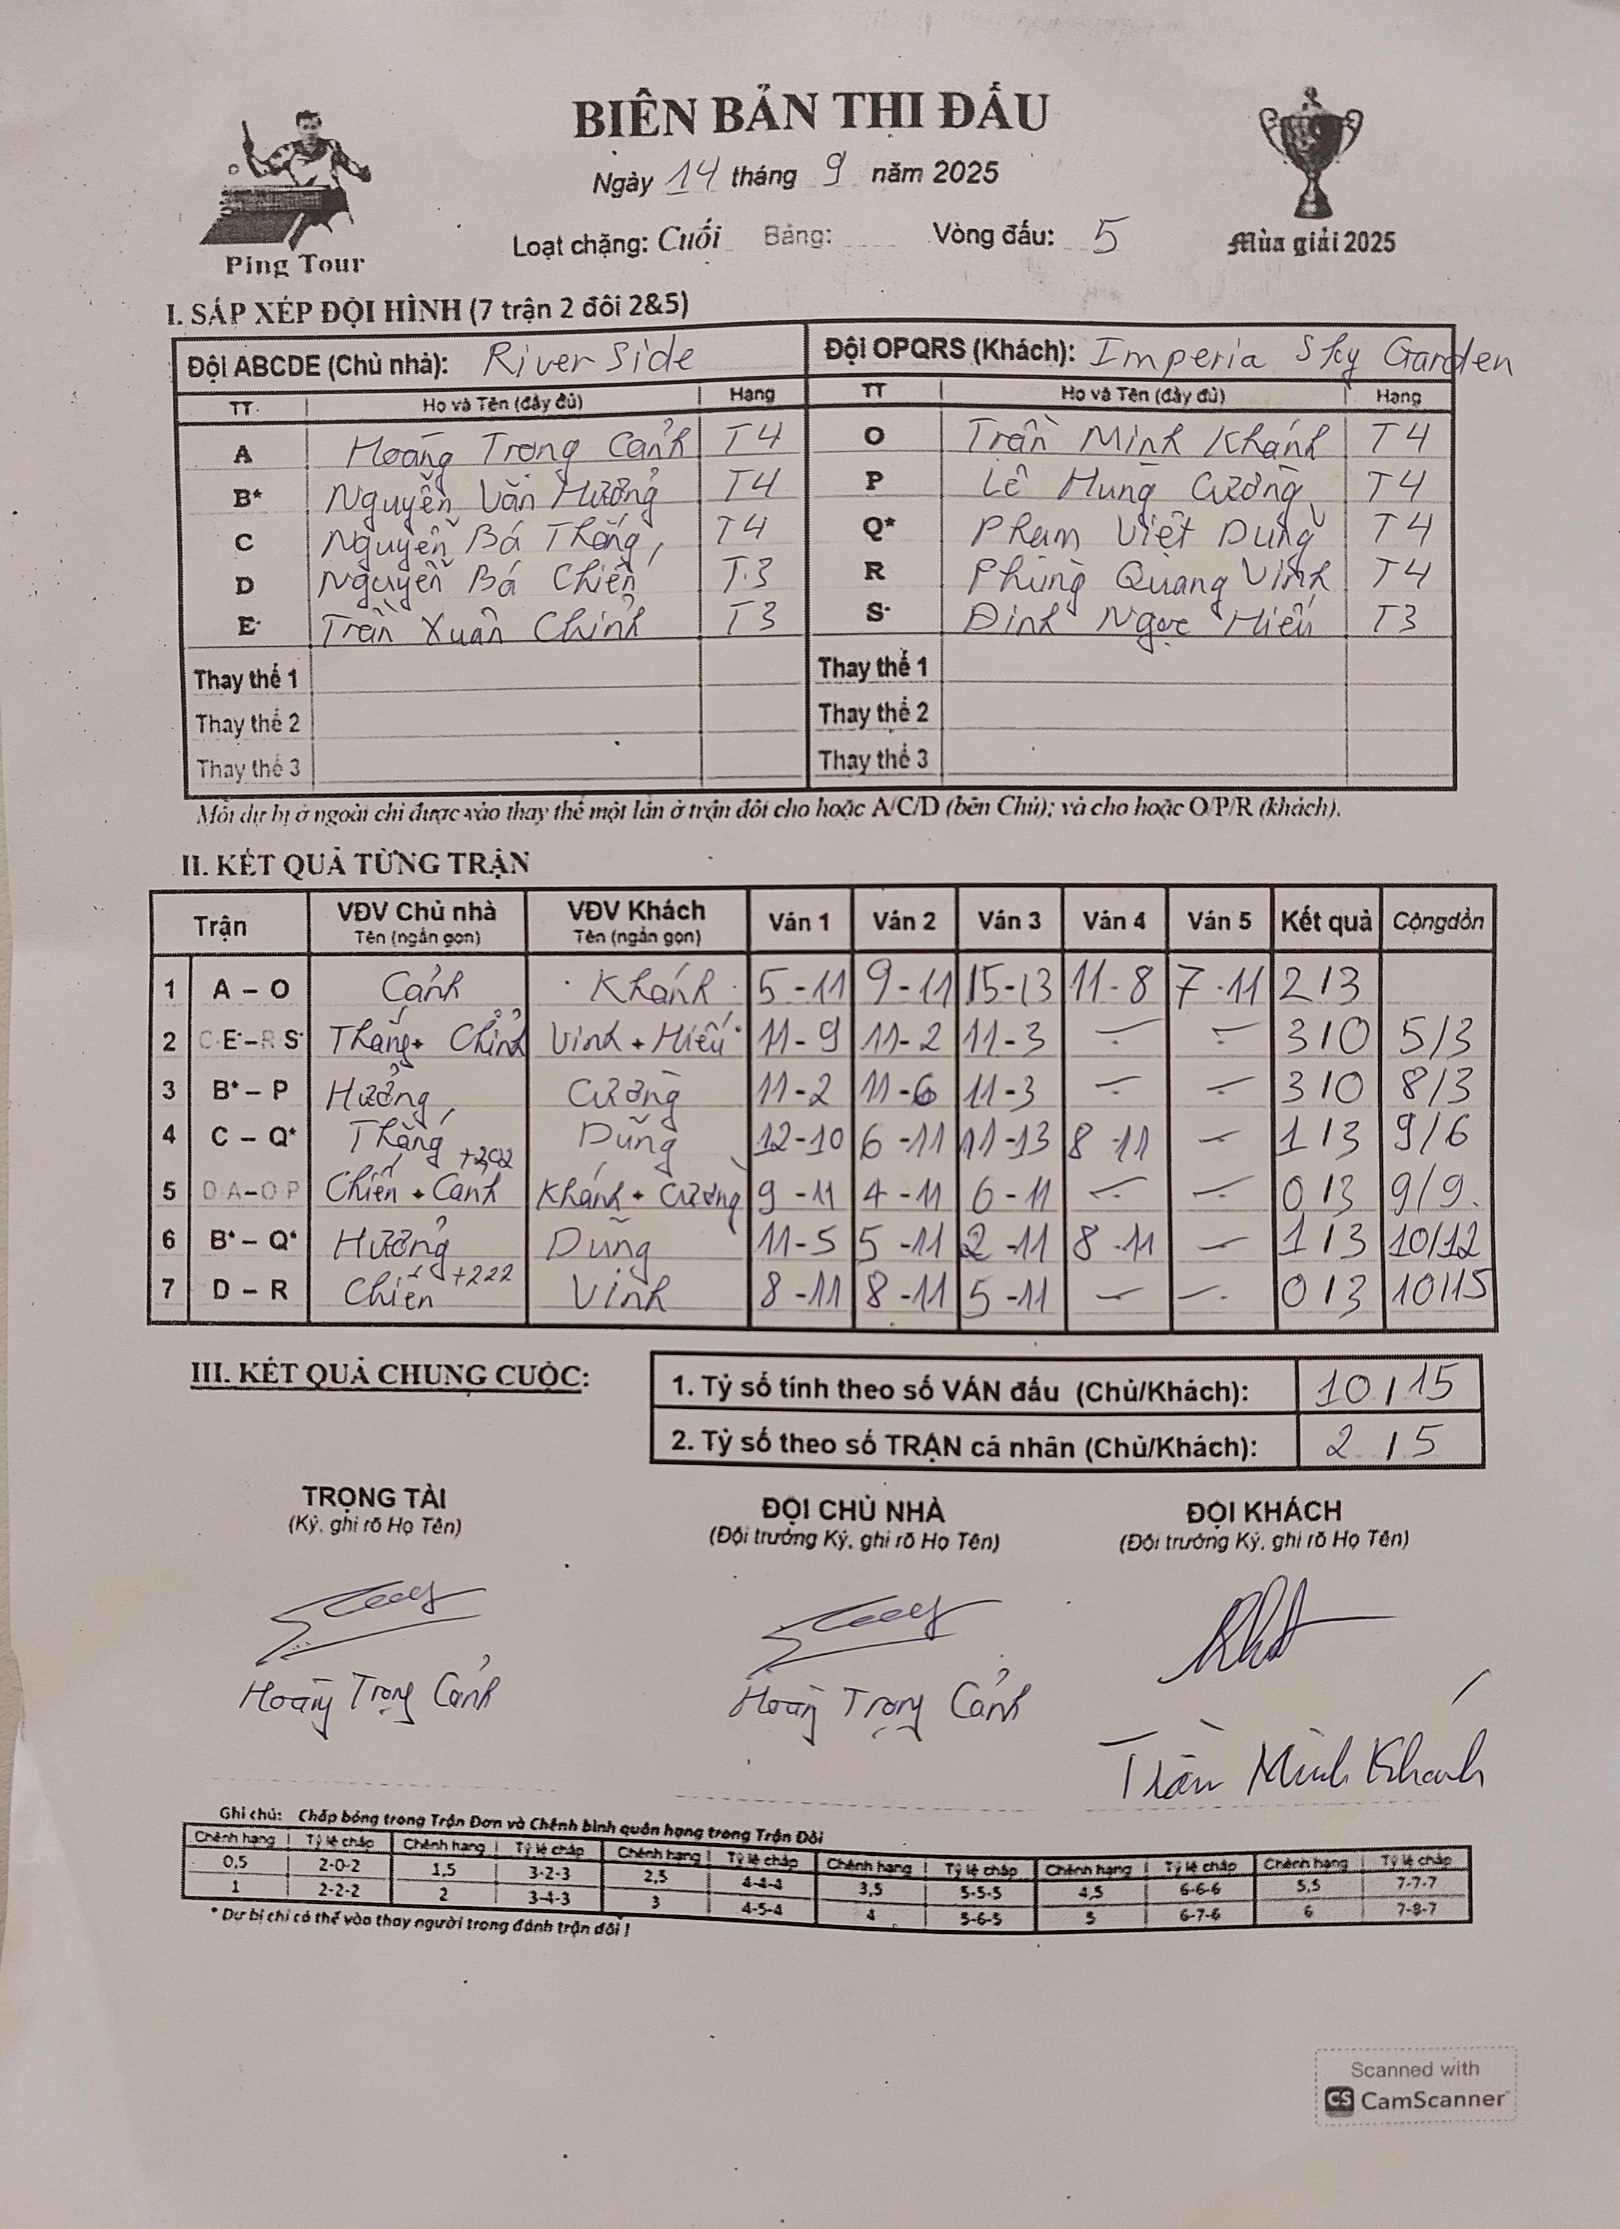 BIÊN BẢN THI ĐẤU
Ngày 14 tháng 9 năm 2025
Loạt chặng: Cuối Bảng: Vòng đấu: 5
Ping Tour
Mùa giải 2025
I. SẮP XẾP ĐỘI HÌNH (7 trận 2 đôi 2&5)
Đội ABCDE (Chủ nhà): River Side Đội OPQRS (Khách): Imperia Sky Garden
TT Họ và Tên (đầy đủ) Hạng TT Họ và Tên (đầy đủ) Hạng
A Hoàng Trọng Cảnh T4 O Trần Minh Khánh T4
B* Nguyễn Văn Hưởng T4 P Lê Hùng Cường T4
C Nguyễn Bá Thắng T4 Q* Phạm Việt Dũng T4
D Nguyễn Bá Chiến T.3 R Phùng Quang Vinh T4
E* Trần Xuân Chỉnh T3 S* Đinh Ngọc Hiếu T3
Thay thế 1 Thay thế 1
Thay thế 2 Thay thế 2
Thay thế 3 Thay thế 3
Mỗi dự bị ở ngoài chỉ được vào thay thế một lần ở trận đôi cho hoặc A/C/D (bên Chủ); và cho hoặc O/P/R (khách).
II. KẾT QUẢ TỪNG TRẬN
Trận VĐV Chủ nhà Tên (ngắn gọn) VĐV Khách Tên (ngắn gọn) Ván 1 Ván 2 Ván 3 Ván 4 Ván 5 Kết quả Cộngdồn
1 A – O Cảnh Khánh 5-11 9-11 15-13 11-8 7-11 2/3
2 C E* – R S* Thắng + Chỉnh Vinh + Hiếu 11-9 11-2 11-3 – – 3/0 5/3
3 B* – P Hưởng Cường 11-2 11-6 11-3 – – 3/0 8/3
4 C – Q* Thắng Dũng 12-10 6-11 11-13 8-11 – 1/3 9/6
5 D A – O P Chiến + Cảnh +202 Khánh + Cường 9-11 4-11 6-11 – – 0/3 9/9
6 B* – Q* Hưởng Dũng 11-5 5-11 2-11 8-11 – 1/3 10/12
7 D – R Chiến +222 Vinh 8-11 8-11 5-11 – – 0/3 10/15
III. KẾT QUẢ CHUNG CUỘC:
1. Tỷ số tính theo số VÁN đấu (Chủ/Khách): 10/15
2. Tỷ số theo số TRẬN cá nhân (Chủ/Khách): 2/5
TRỌNG TÀI ĐỘI CHỦ NHÀ ĐỘI KHÁCH
(Ký, ghi rõ Họ Tên) (Đội trưởng Ký, ghi rõ Họ Tên) (Đội trưởng Ký, ghi rõ Họ Tên)
Hoàng Trọng Cảnh Hoàng Trọng Cảnh Trần Minh Khánh
Ghi chú: Chấp bóng trong Trận Đơn và Chênh bình quân hạng trong Trận Đôi
Chênh hạng Tỷ lệ chấp Chênh hạng Tỷ lệ chấp Chênh hạng Tỷ lệ chấp Chênh hạng Tỷ lệ chấp Chênh hạng Tỷ lệ chấp Chênh hạng Tỷ lệ chấp
0,5 2-0-2 1,5 3-2-3 2,5 4-4-4 3,5 5-5-5 4,5 6-6-6 5,5 7-7-7
1 2-2-2 2 3-4-3 3 4-5-4 4 5-6-5 5 6-7-6 6 7-8-7
* Dự bị chỉ có thể vào thay người trong đánh trận đôi !
Scanned with
CS CamScanner